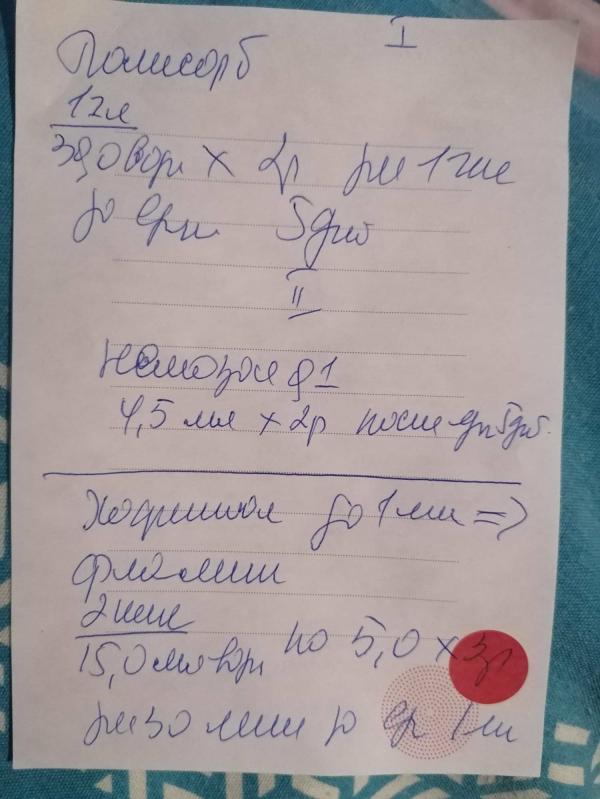 I
Полисорб
1 чл
30,0 воды x 2р за 1 час
до еды 5 дней
II
Немозол ф1
4,5 мл x 2р после еды 5 дней
Хофитол до 1 мес =>
Фламин
2 шт
15,0 мл воды по 5,0 x 3р
за 30 мин до еды 1 м